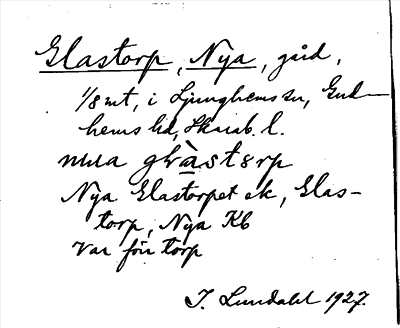 Glastorp, Nya, gård,
1/8 mt, i Ljunghems sn, Gud-
hems hd, Skarab. l.
nya glàstørp
Nya Glastorpet ek, Glas-
torp, Nya Kb
Var förr torp
I. Lundahl 1927.